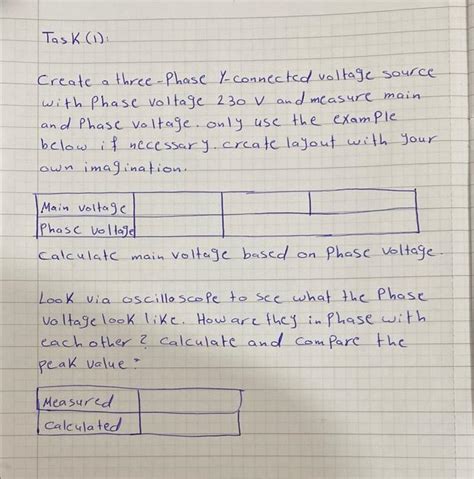 Task(1):
Create a three-Phase Y-connected voltage source
with Phase voltage 230 V and measure main
and Phase voltage. only use the example
below if necessary. create layout with your
own imagination.
Main voltage
Phase voltage
Calculate main voltage based on Phase voltage.
Look via oscilloscope to see what the Phase
voltage look like. How are they in phase with
each other? Calculate and compare the
peak value:
Measured
Calculated